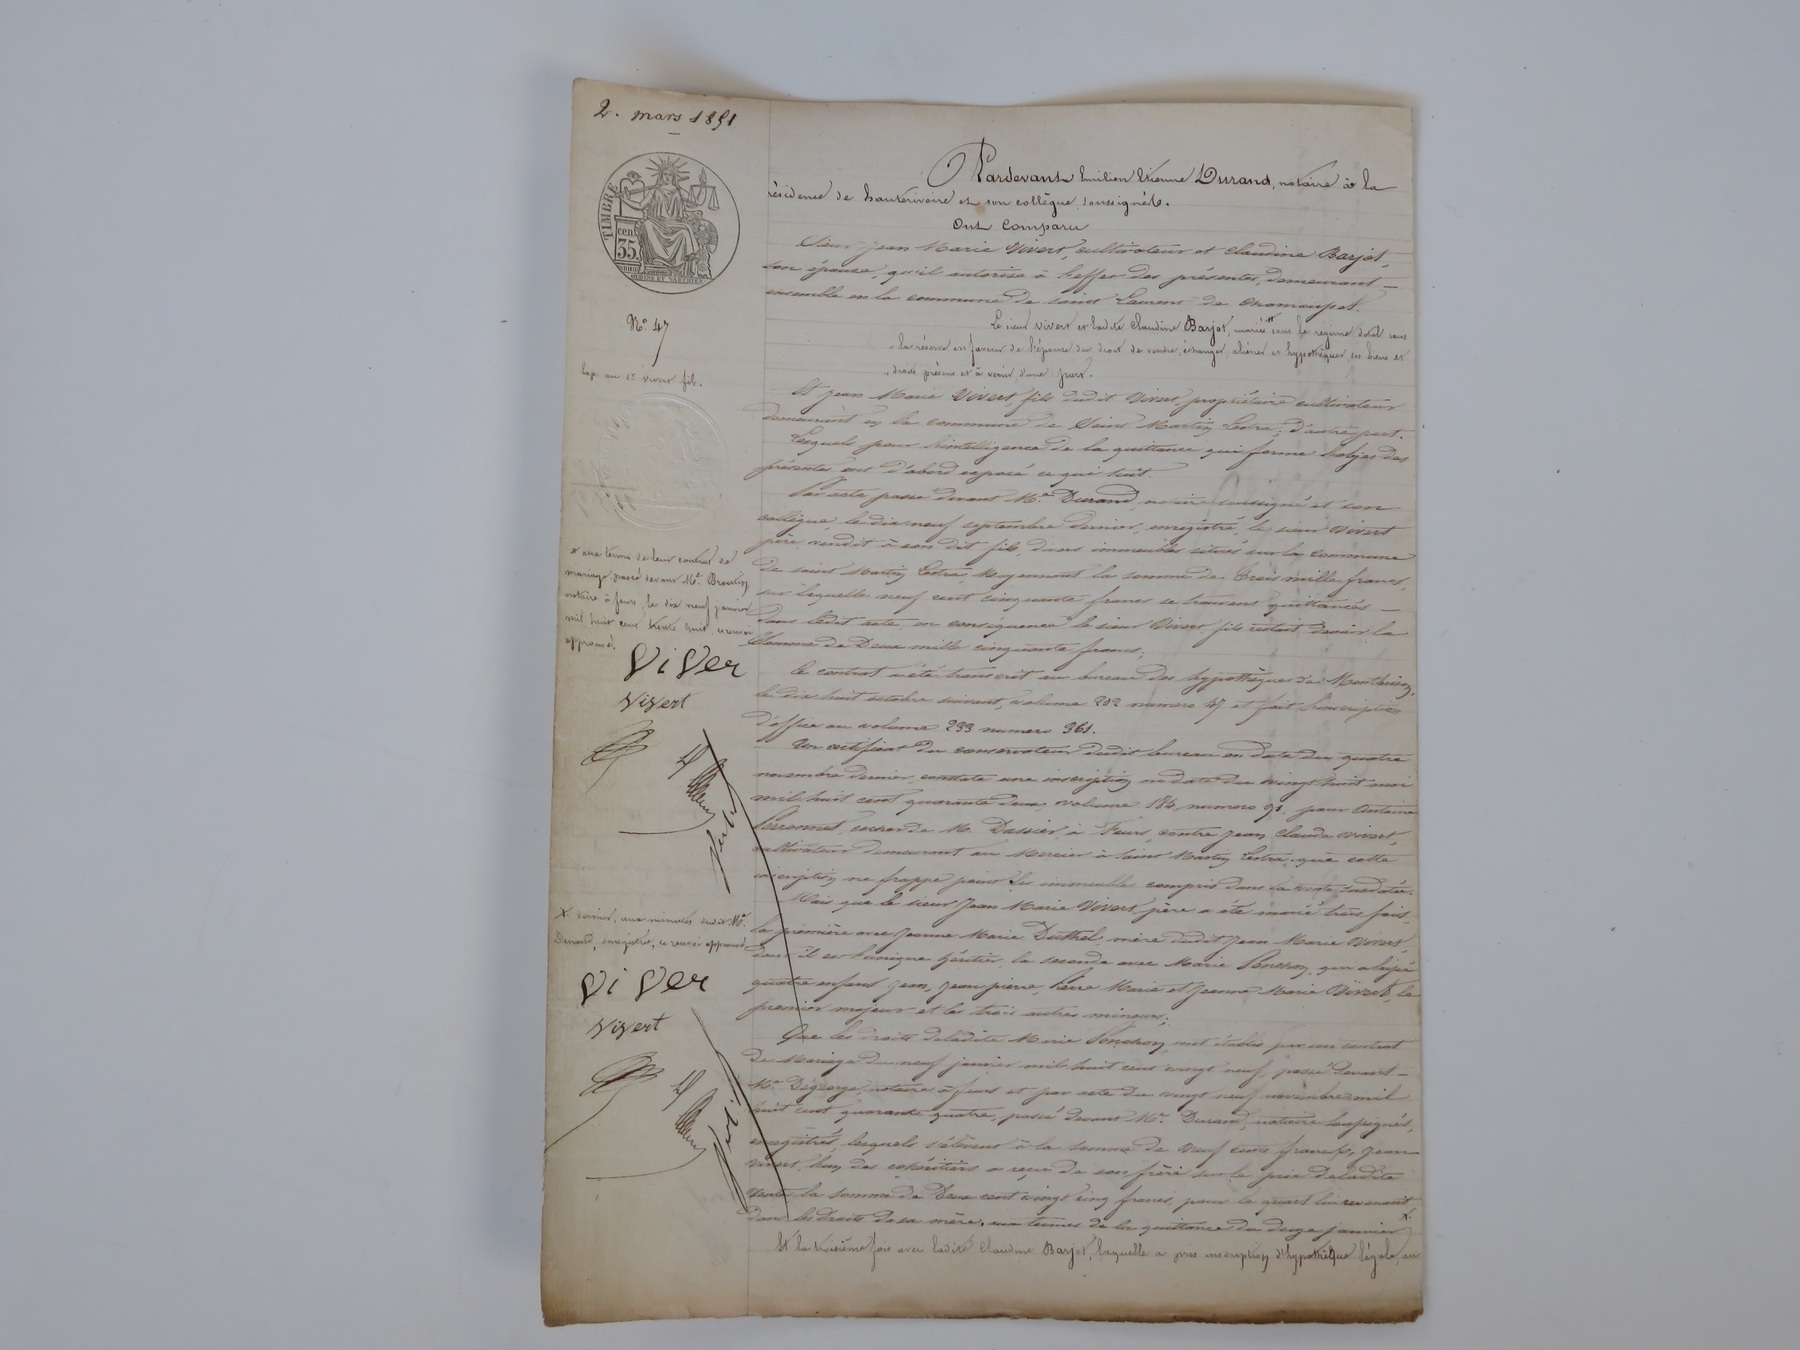 2. mars 1851
TIMBRE
cen.
35.
N.º 47
Exp. au s.r vivert fils.
Pardevant Emilien Etienne Durand, notaire à la
résidence de hauterivoire et son collègue soussignés.
Ont Comparu
Sieur Jean Marie Vivert, cultivateur et Claudine Barjot,
son épouse, qu'il autorise à l'effet des présentes, demeurant
ensemble en la commune de saint Laurent de chamousset.
Le sieur vivert et ladite Claudine Barjot, mariés sous le régime dotal sous
la réserve en faveur de l'épouse du droit de vendre, échanger, aliéner et hypothéquer, ses biens et
droits présens et à venir, d'une part.
Et Jean Marie Vivert, fils dudit Vivert, propriétaire cultivateur
demeurant en la commune de Saint Martin Lestra; d'autre part.
Lesquels pour l'intelligence de la quittance qui forme l'objet des
présentes ont d'abord exposé ce qui suit.
Par acte passé devant M.e Durand, notaire soussigné et son
collègue, le dix neuf septembre dernier, enregistré, le sieur Vivert
père vendit à son dit fils, divers immeubles situés sur la commune
de saint Martin Lestra, Moyennant la somme de Trois mille francs,
sur laquelle neuf cent cinquante francs se trouvent quittancés
dans ledit acte, en conséquence le sieur Vivert fils restait devoir la
Somme de Deux mille cinquante francs;
Ce contrat a été transcrit au bureau des hypothèques de Montbrison,
le dix huit octobre suivant, volume 202 numero 47 et fait l'inscription
d'office au volume 233 numero 361.
Un certificat du conservateur dudit bureau en date du quatre
novembre dernier, constate une inscription en date du vingt huit mai
mil huit cent quarante deux, volume 186, numero 91 pour Antoine
cocher de M. Dassier, à Feurs, contre Jean Claude vivert,
cultivateur demeurant au Mercier à Saint Martin Lestra, que cette
inscription ne frappe point les immeubles compris dans la vente susdatée.
Mais que le sieur Jean Marie Vivert, père a été marié trois fois,
la première avec Jeanne Marie Duthel, mère dudit Jean Marie Vivert,
dont il est l'unique héritier, la seconde avec Marie Ponchon, qui a laissé
quatre enfans Jean, Jean pierre, Pierre Marie et Jeanne Marie Vivert, le
premier majeur et les trois autres mineurs;
Que les droits de ladite Marie Ponchon, sont établis par son contrat
De Mariage du neuf janvier mil huit cent vingt neuf, passé devant
M.e Degeorge, notaire à feurs et par acte du vingt neuf novembre mil
huit cent quarante quatre, passé devant M.e Durand, notaire soussigné,
enregistrés, lesquels s'élèvent à la somme de Neuf cents francs, Jean
vivert, l'un des cohéritiers a reçu de son frère sur le prix de ladite
Vente, la somme de Deux cent vingt cinq francs, pour le quart lui revenant
dans les droits de sa mère, aux termes de la quittance du douze janvier X.
Et la troisième fois avec ladite Claudine Barjot, laquelle a pris inscription d'hypothèque légale, au
et aux termes de leur contrat de
mariage passé devant M.e
notaire à feurs, le dix neuf janvier
mil huit cent trente huit. ce renvoi
approuvé.
ViVer
Vivert
X. dernier, aux minutes dudit M.e
Durand, enregistré, ce renvoi approuvé
ViVer
Vivert